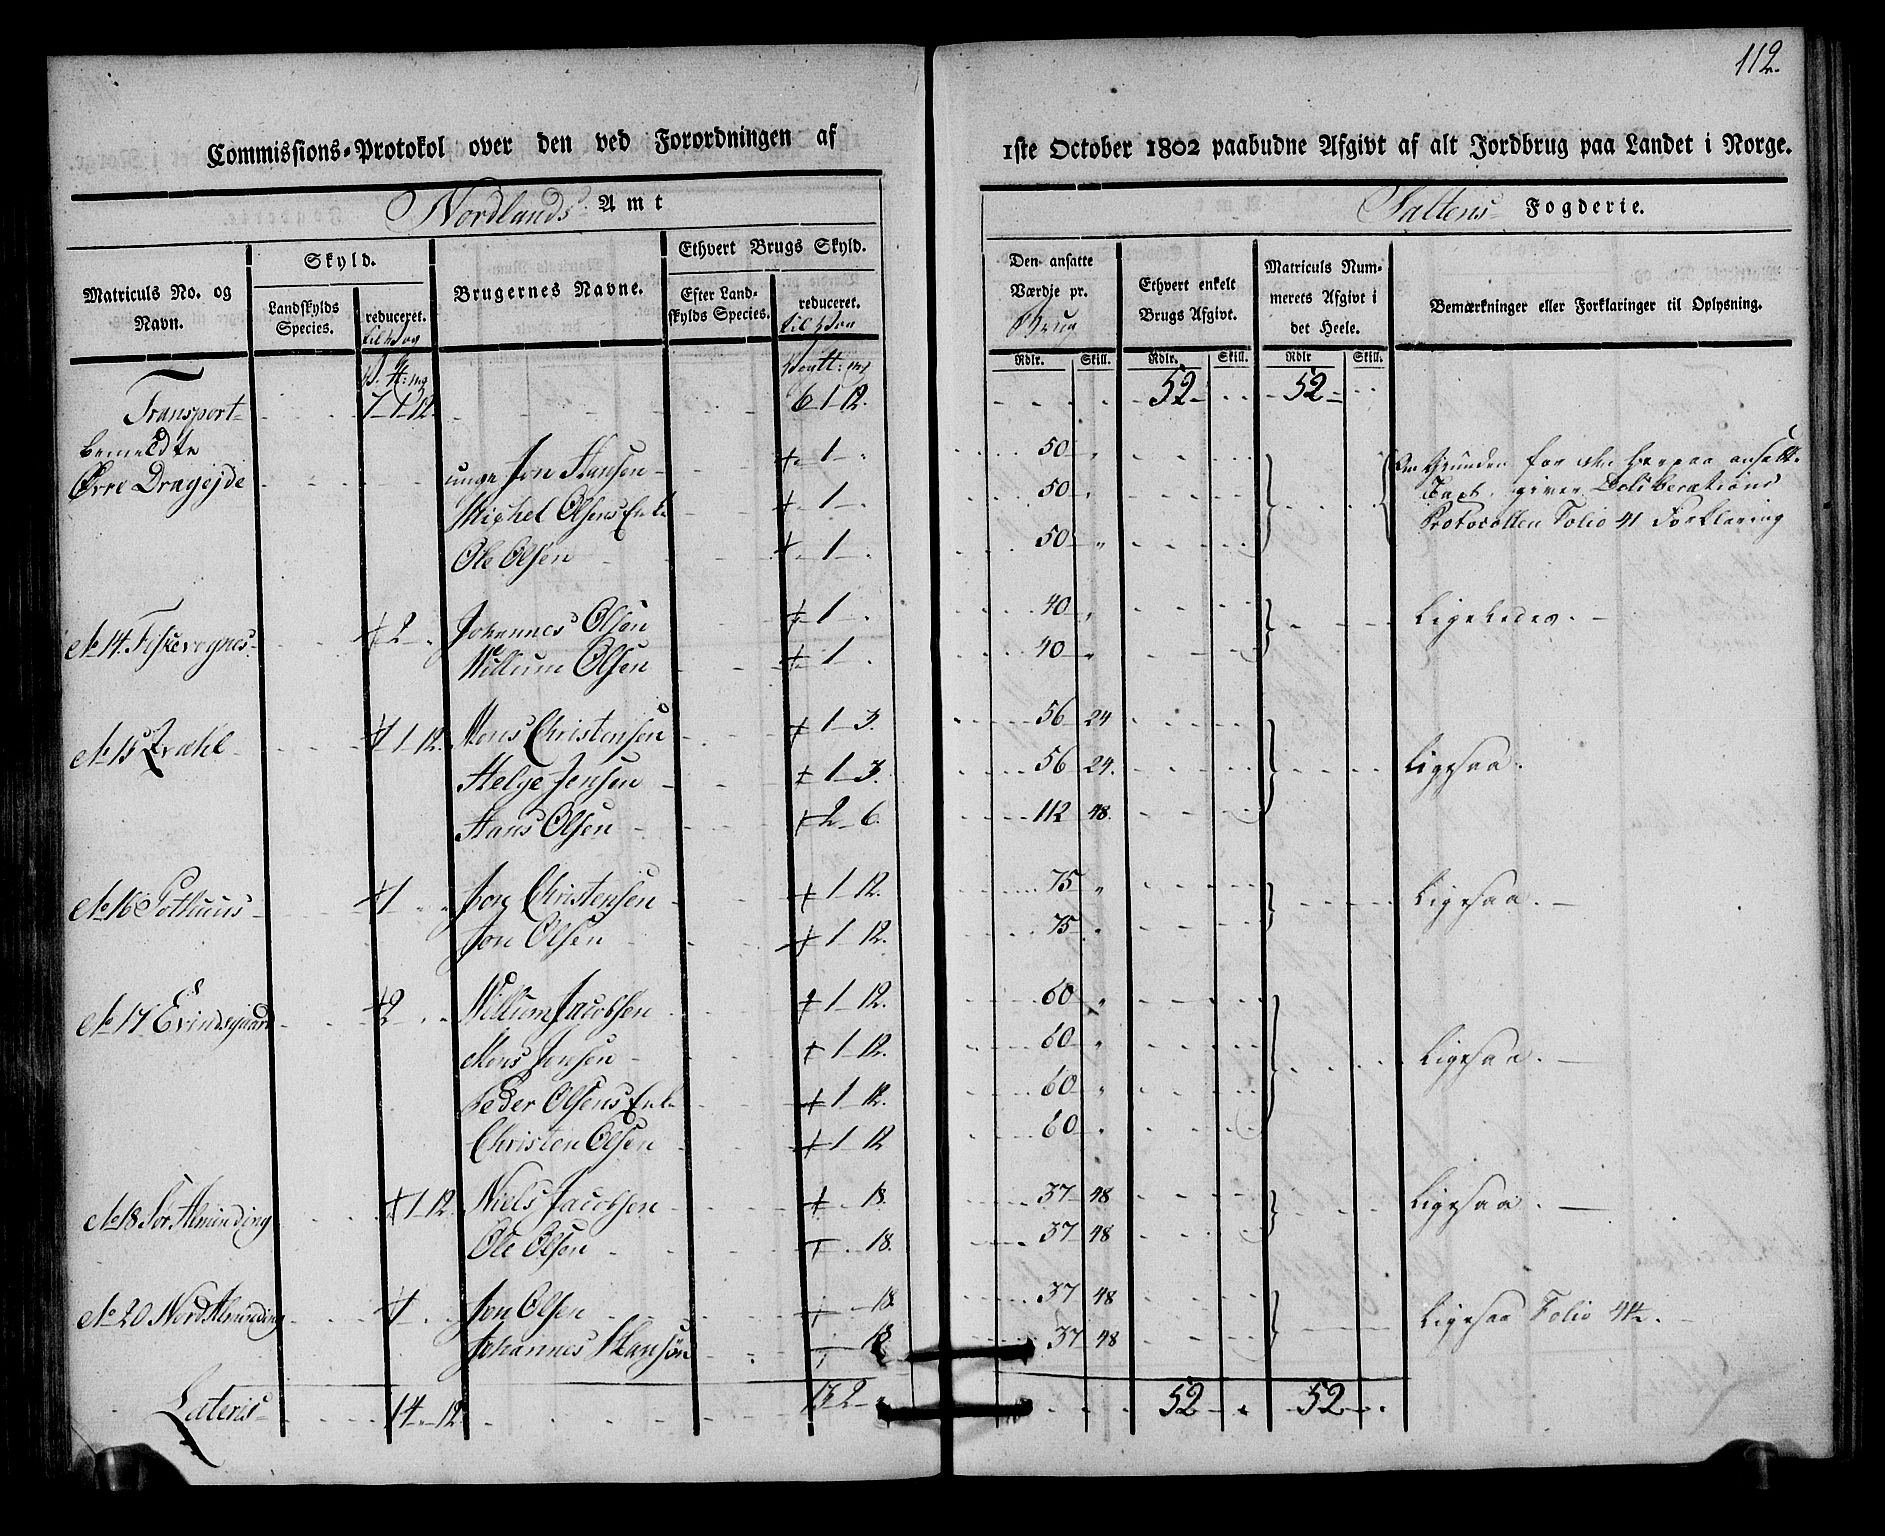 112.
Commissions-Protokol over den ved Forordningen af 1ste October 1802 paabudne Afgivt af alt Jordbrug paa Landet i Norge.
Nordlands Amt Saltens Fogderie.
Matriculs No. og Navn.
Skyld.
Landskylds Species.
reduceret.
Brugernes Navne.
Ethvert Brugs Skyld.
Efter Landskylds Species.
reduceret.
Den ansatte Værdje pr. Brug
Ethvert enkelt Brugs Afgivt.
Matriculs Nummerets Afgivt i det Heele.
Bemærkninger eller Forklaringer til Oplysning.
Rdlr. Skill. Rdlr. Skill. Rdlr Skill.
Transport 7 1 12 6 1 12. 52 52
bemeldte
Øvre Dragejde unge Jon Hansen 1 50
Michel Olsens Enke 1 50
Ole Olsen 1 50
Om Grunden for den herpaa ansatte
Taxt, giver Deliberations
Protocollen Folio 41 Forklaring
No 14 Fiskevognes 2 Johannes Olsen 1 40 Ligeledes.
Willum Olsen 1 40
No 15 1 12. Mons Christensen 1 3. 56 24
Helge Jensen 1 3. 56 24. Ligesaa.
Hans Olsen 2 6. 112 48.
No 16 Pothuus 1 Jon Christensen 1 12. 75 Ligesaa.
Jon Olsen 1 12. 75
No 17 Evindsgaard 2 Willum Jacobsen 1 12. 60
Mons Jensen 1 12. 60 Ligesaa.
Peder Olsens Enke 1 12. 60
Christen Olsen 1 12 60
No 18 Sør Alminding 1 12. Niels Jacobsen 18. 37 48 Ligesaa.
Ole Olsen 18. 37 48
No 20 Nord Alminding Jon Olsen 18. 37 48 Ligesaa Folio 44.
Johannes Hansen 18 37 48
Lateris 14 12 13 2 52 52